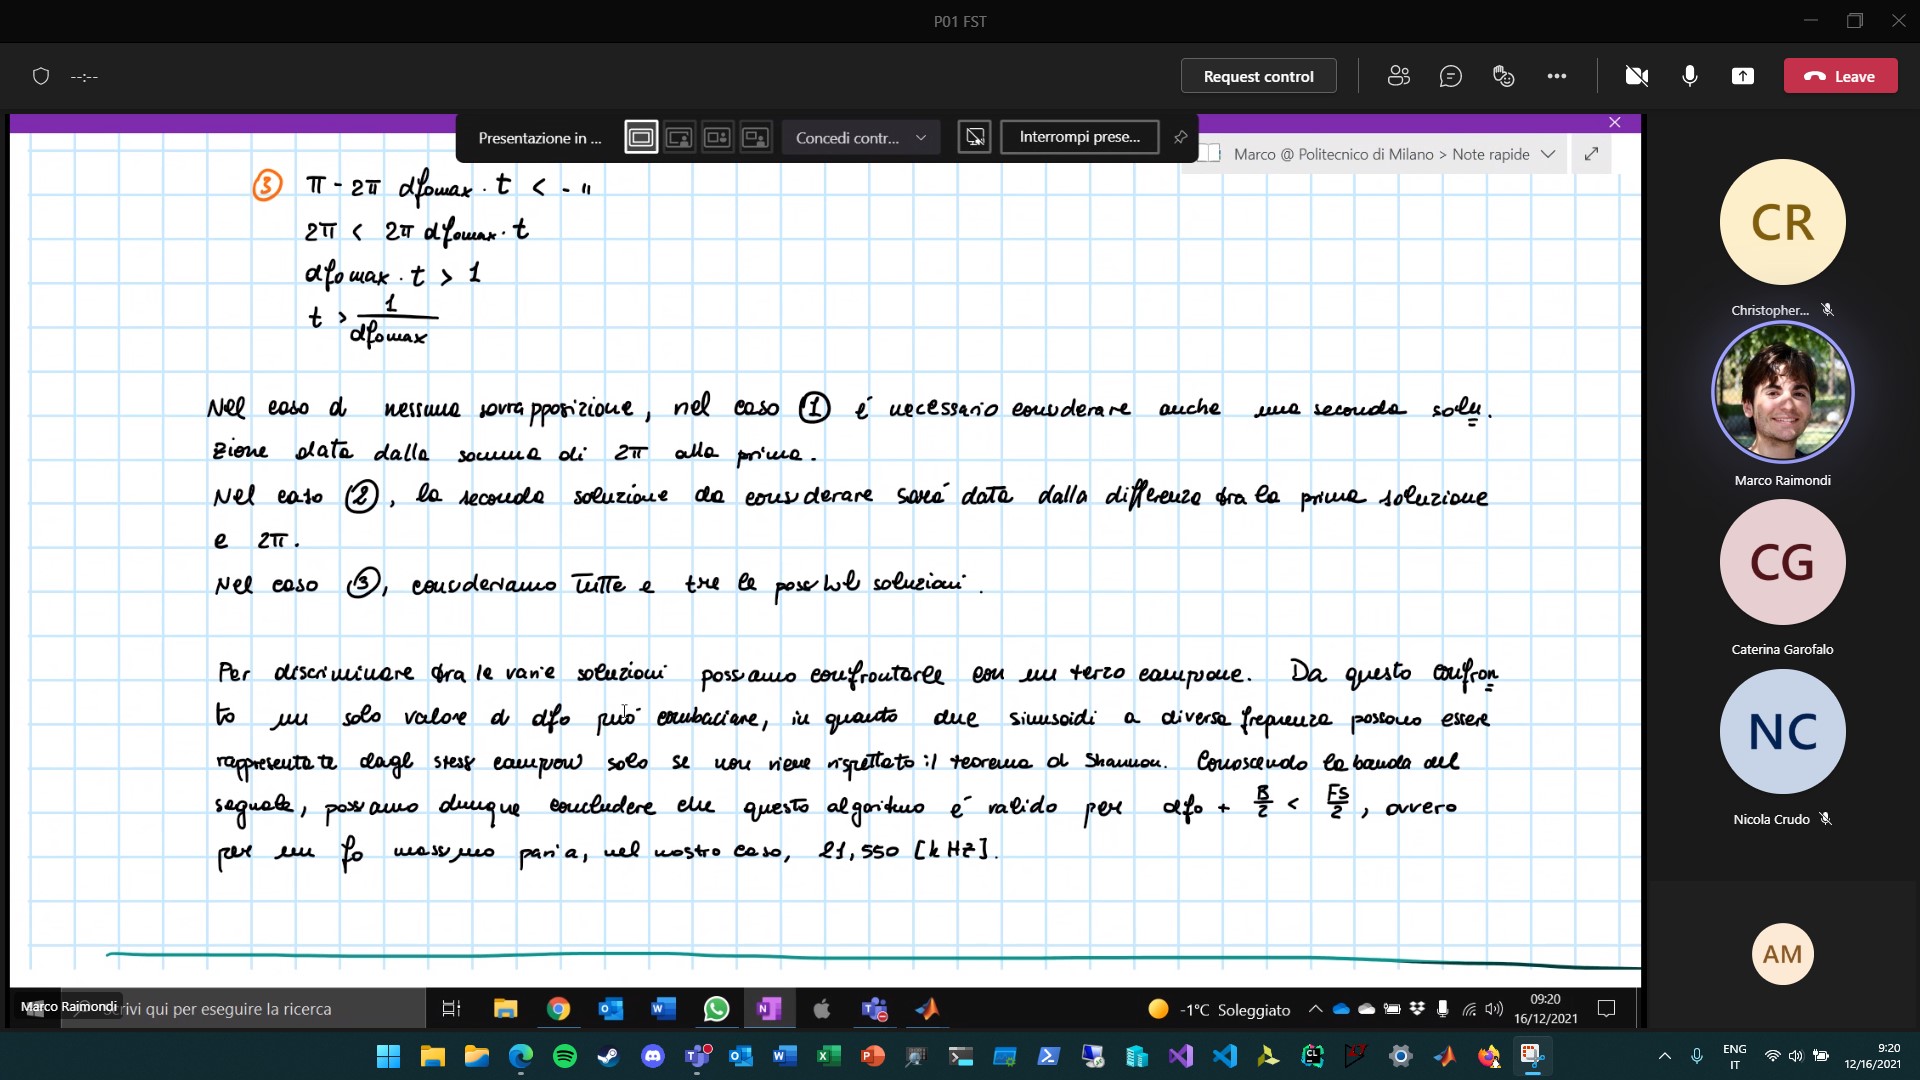 P01 FST
--:--
Request control
Leave
Presentazione in ...
Concedi contr...
Interrompi prese...
Marco @ Politecnico di Milano > Note rapide
③ π - 2π dfomax · t < - π
2π < 2π dfomax · t
dfomax · t > 1
t > 1/dfomax
Nel caso di nessuna sovrapposizione, nel caso ① é necessario considerare anche una seconda solu
zione data dalla somma di 2π alla prima.
Nel caso ②, la seconda soluzione da considerare sará data dalla differenza tra la prima soluzione
e 2π.
Nel caso ③, consideriamo tutte e tre le possibili soluzioni.
Per discriminare tra le varie soluzioni possiamo confrontarle con un terzo campione. Da questo confron
to un solo valore di dfo può combaciare, in quanto due sinusoidi a diversa frequenza possono essere
rappresentate dagli stessi campioni solo se non viene rispettato il teorema di Shannon. Conoscendo la banda del
segnale, possiamo dunque concludere che questo algoritmo é valido per dfo + B/2 < FS/2, ovvero
per un fo massimo pari a, nel nostro caso, 21,550 [kHz].
CR
Christopher...
Marco Raimondi
CG
Caterina Garofalo
NC
Nicola Crudo
AM
Marco Raimondi
crivi qui per eseguire la ricerca
-1°C Soleggiato
09:20
16/12/2021
ENG
IT
9:20
12/16/2021